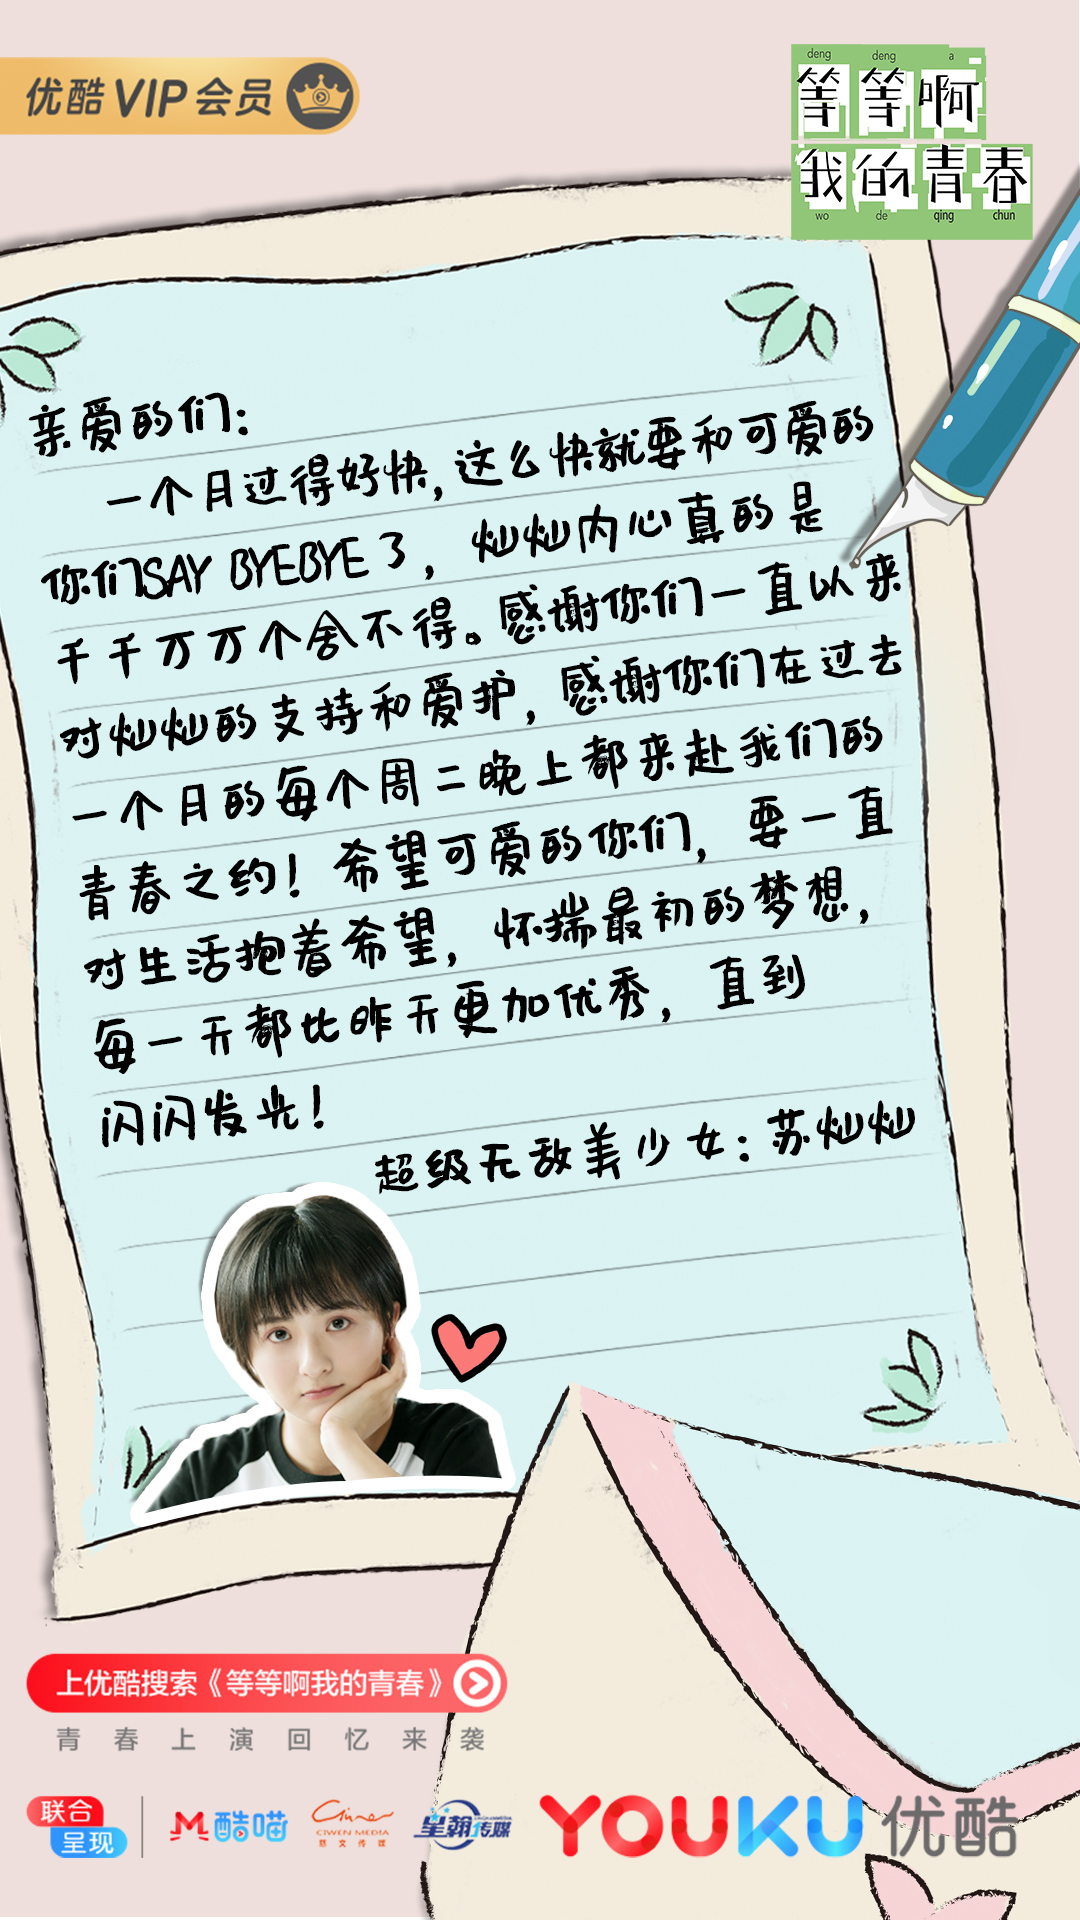 优酷 VIP 会员
deng deng a
等等啊
我的青春
wo de qing chun
亲爱的们:
一个月过得好快,这么快就要和可爱的
你们SAY BYEBYE了,灿灿内心真的是
千千万万个舍不得。感谢你们一直以来
对灿灿的支持和爱护,感谢你们在过去
一个月的每个周二晚上都来赴我们的
青春之约!希望可爱的你们,要一直
对生活抱着希望,怀揣最初的梦想,
每一天都比昨天更加优秀,直到
闪闪发光!
超级无敌美少女:苏灿灿
上优酷搜索《等等啊我的青春》
青春上演回忆来袭
联合
呈现
酷喵
CIWEN MEDIA
慈文传媒
星瀚传媒
YOUKU 优酷